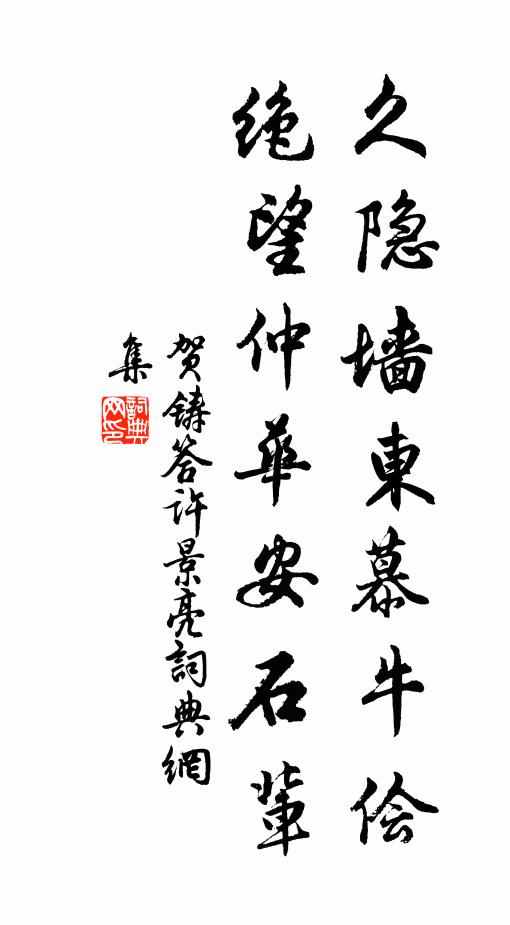 久隐墙東慕牛侩
绝望仲華安石輩
贺铸答许景亮詞典網
集
詞典网印